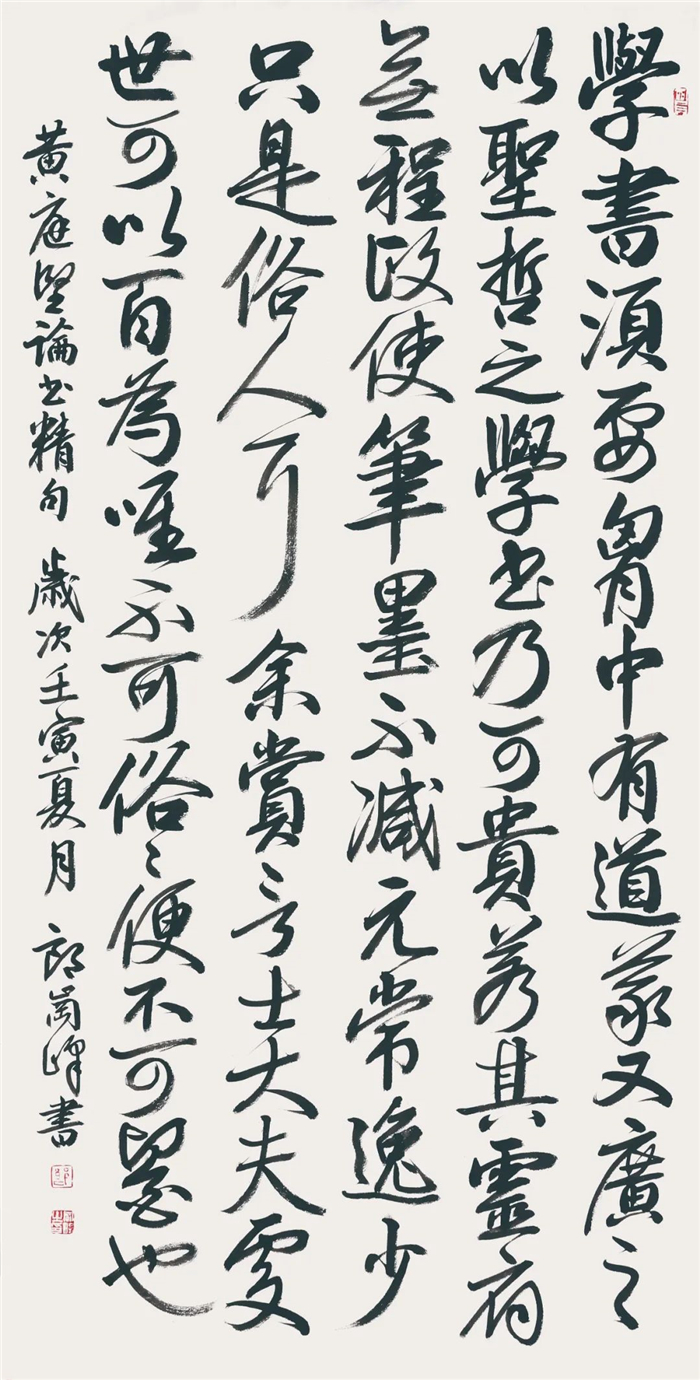 學書須要胷中有道義又廣之
以聖哲之學書乃可貴若其靈府
無程政使筆墨不減元常逸少
只是俗人耳余嘗言士大夫處
世可以百為唯不可俗〻便不可醫也
黃庭堅論書精句 歲次壬寅夏月 郎崗峰書